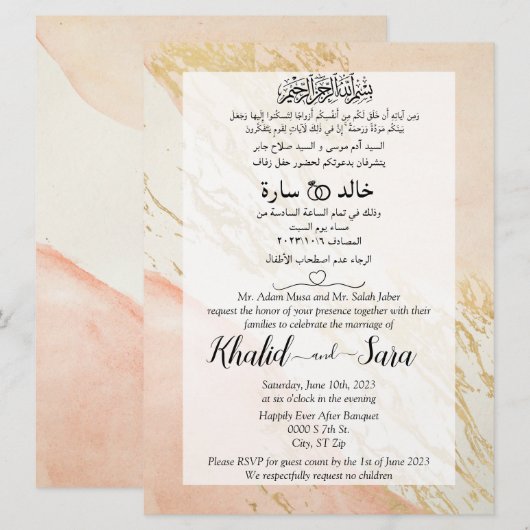 بسم الله الرحمن الرحيم
ومن آياته أن خلق لكم من أنفسكم أزواجا لتسكنوا إليها وجعل
بينكم مودة ورحمة إن في ذلك لآيات لقوم يتفكرون
السيد آدم موسى و السيد صلاح جابر
يتشرفان بدعوتكم لحضور حفل زفاف
خالد سارة
وذلك في تمام الساعة السادسة من
مساء يوم السبت
المصادف ٢٠٢٣/١٠/٦
الرجاء عدم اصطحاب الأطفال
Mr. Adam Musa and Mr. Salah Jaber
request the honor of your presence together with their
families to celebrate the marriage of
Khalid and Sara
Saturday, June 10th, 2023
at six o'clock in the evening
Happily Ever After Banquet
0000 S 7th St.
City, ST Zip
Please RSVP for guest count by the 1st of June 2023
We respectfully request no children